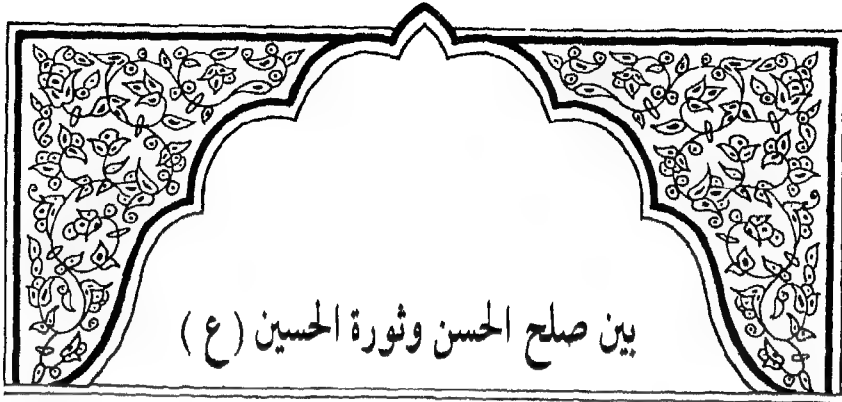 بين صلح الحسن وثورة الحسين (ع)